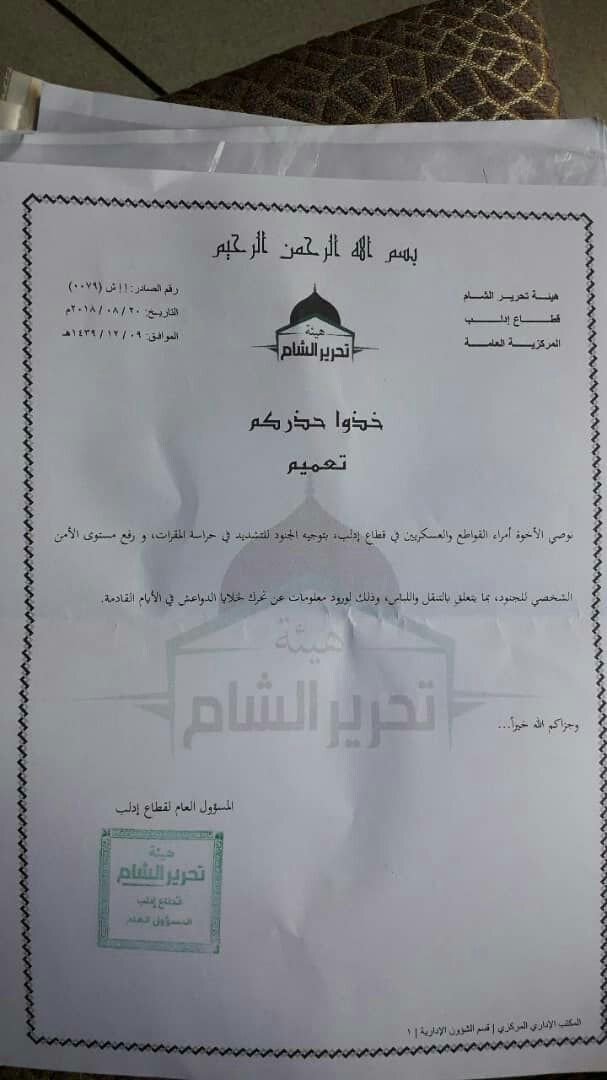 بسم الله الرحمن الرحيم
هيئة تحرير الشام
قطاع إدلب
المركزية العامة
رقم الصادر: إ إ ش (٠٠٧٩)
التاريخ: ٢٠ / ٠٨ / ٢٠١٨م
الموافق: ٠٩ / ١٢ / ١٤٣٩هـ
هيئة
تحرير الشام
خذوا حذركم
تعميم
نوصي الأخوة أمراء القواطع والعسكريين في قطاع إدلب، بتوجيه الجنود للتشديد في حراسة المقرات، و رفع مستوى الأمن
الشخصي للجنود، بما يتعلق بالتنقل واللباس، وذلك لورود معلومات عن تحرك خلايا الدواعش في الأيام القادمة.
هيئة
تحرير الشام
وجزاكم الله خيراً...
المسؤول العام لقطاع إدلب
هيئة
تحرير الشام
قطاع إدلب
المسؤول العام
المكتب الإداري المركزي | قسم الشؤون الإدارية | ١